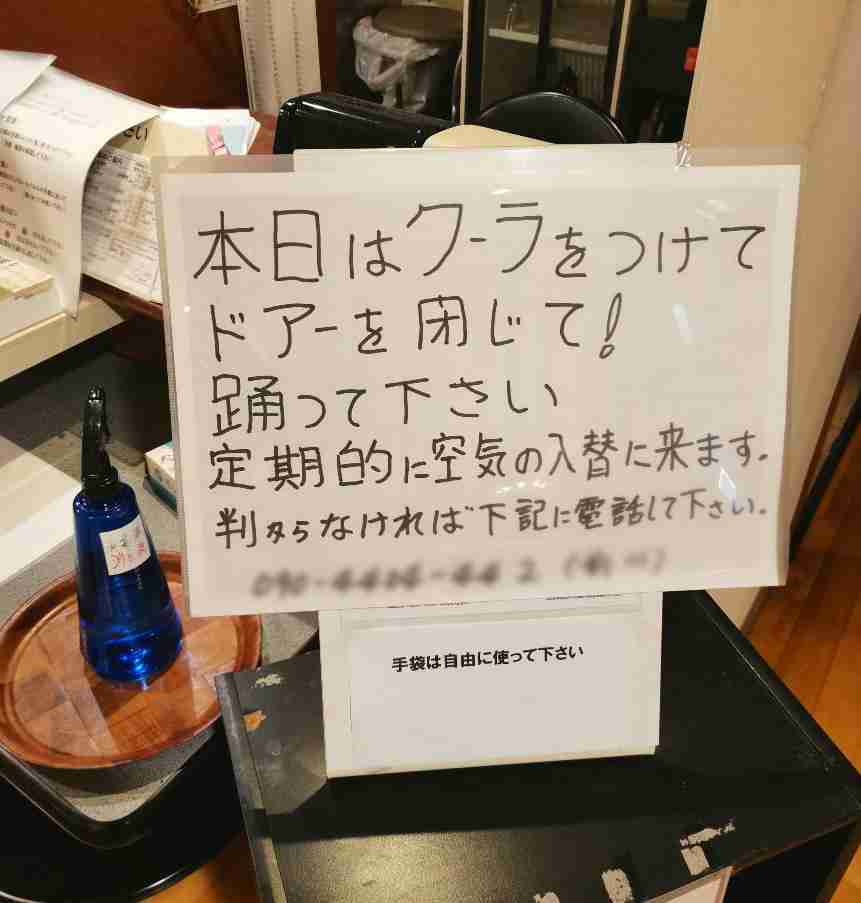 本日はクーラをつけて
ドアーを閉じて!
踊って下さい
定期的に空気の入替に来ます。
判からなければ下記に電話して下さい。
手袋は自由に使って下さい